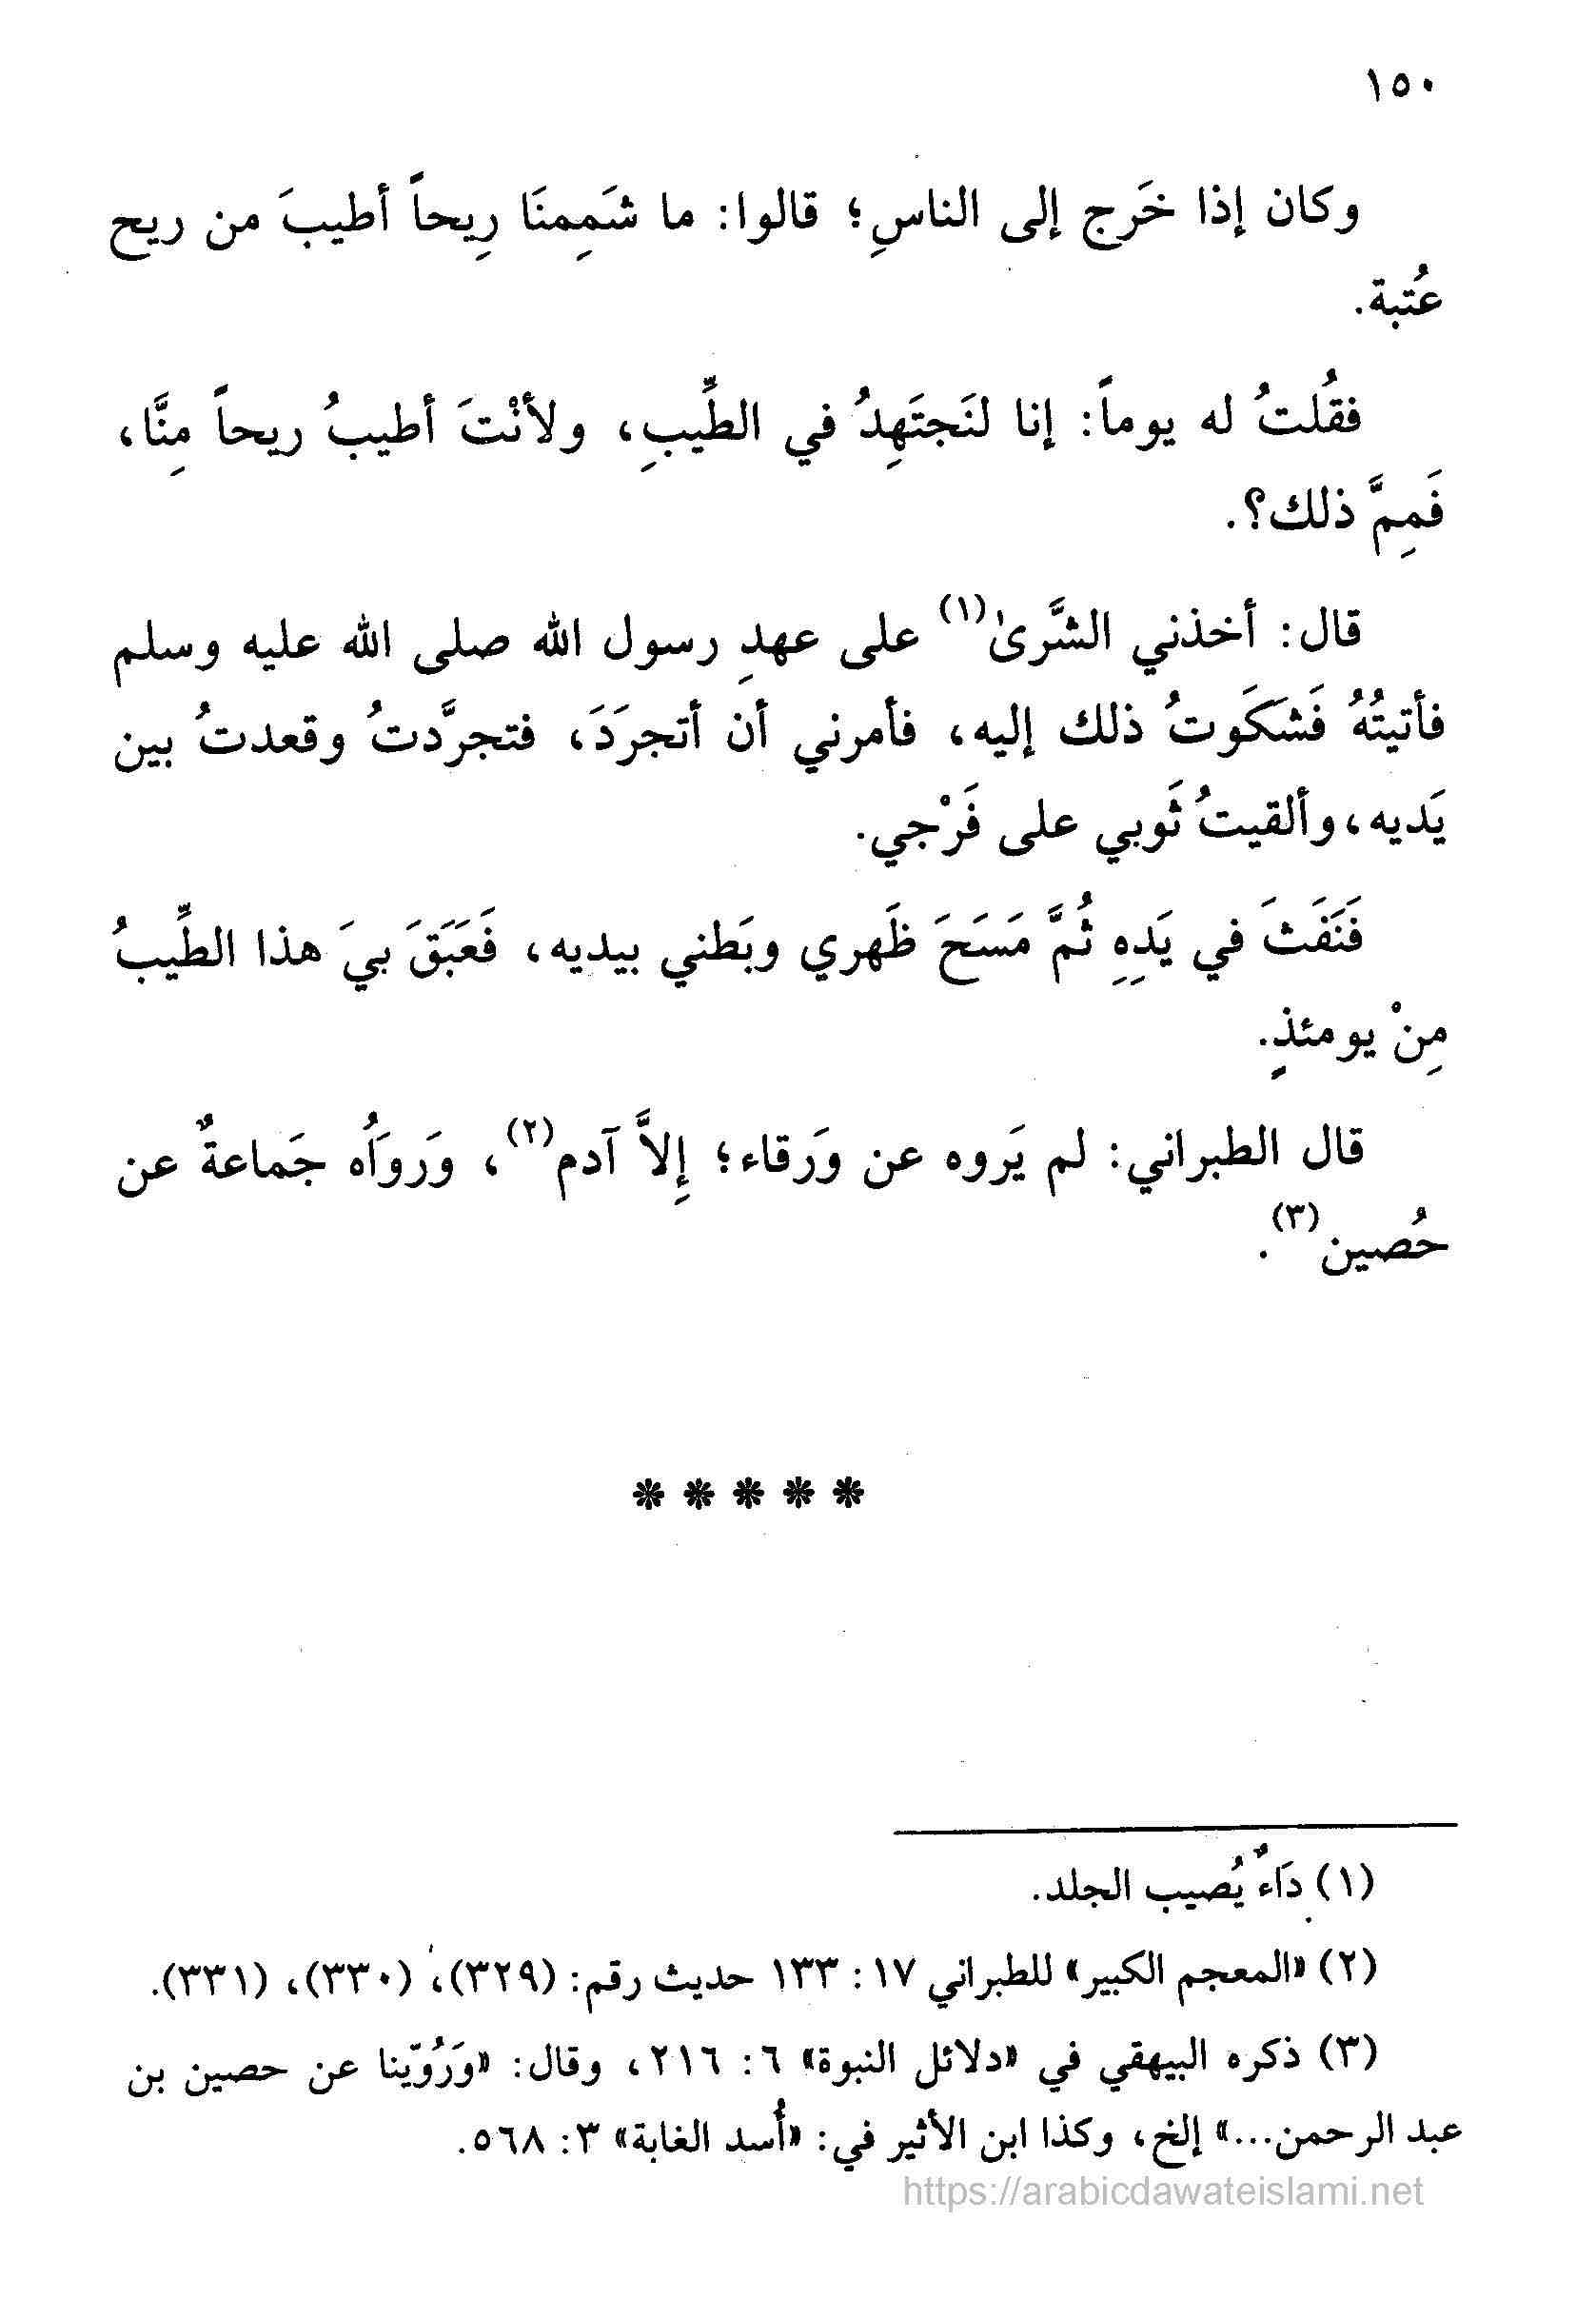 ١٥٠
وكان إذا خَرَج إلى الناسِ؛ قالوا: ما شَمِمنَا رِيحاً أطيبَ من ريح
عُتبة.
فقُلتُ له يوماً: إنا لنَجتَهِدُ في الطِّيبِ، ولأنْتَ أطيبُ ريحاً مِنَّا،
فَمِمَّ ذلك؟.
قال: أخذني الشَّرىٰ(١) على عهدِ رسول الله صلى الله عليه وسلم
فأتيتُهُ فَشكَوتُ ذلك إليه، فأمرني أن أتجرَدَ، فتجرَّدتُ وقعدتُ بين
يَديه، وألقيتُ ثَوبي على فَرْجي.
فَنَفَثَ في يَدِهِ ثُمَّ مَسَحَ ظَهري وبَطني بيديه، فَعَبَقَ بيَ هذا الطِّيبُ
مِنْ يومئذٍ.
قال الطبراني: لم يَروه عن وَرقاء؛ إِلاَّ آدم(٢)، وَروَاُه جَماعةٌ عن
حُصين(٣).
*****
(١) دَاءٌ يُصيب الجلد.
(٢) «المعجم الكبير» للطبراني ١٧: ١٣٣ حديث رقم: (٣٢٩)، (٣٣٠)، (٣٣١).
(٣) ذكره البيهقي في «دلائل النبوة» ٦: ٢١٦، وقال: «وَرُوّينا عن حصين بن
عبد الرحمن...» إلخ، وكذا ابن الأثير في: «أُسد الغابة» ٣: ٥٦٨.
https://arabicdawateislami.net